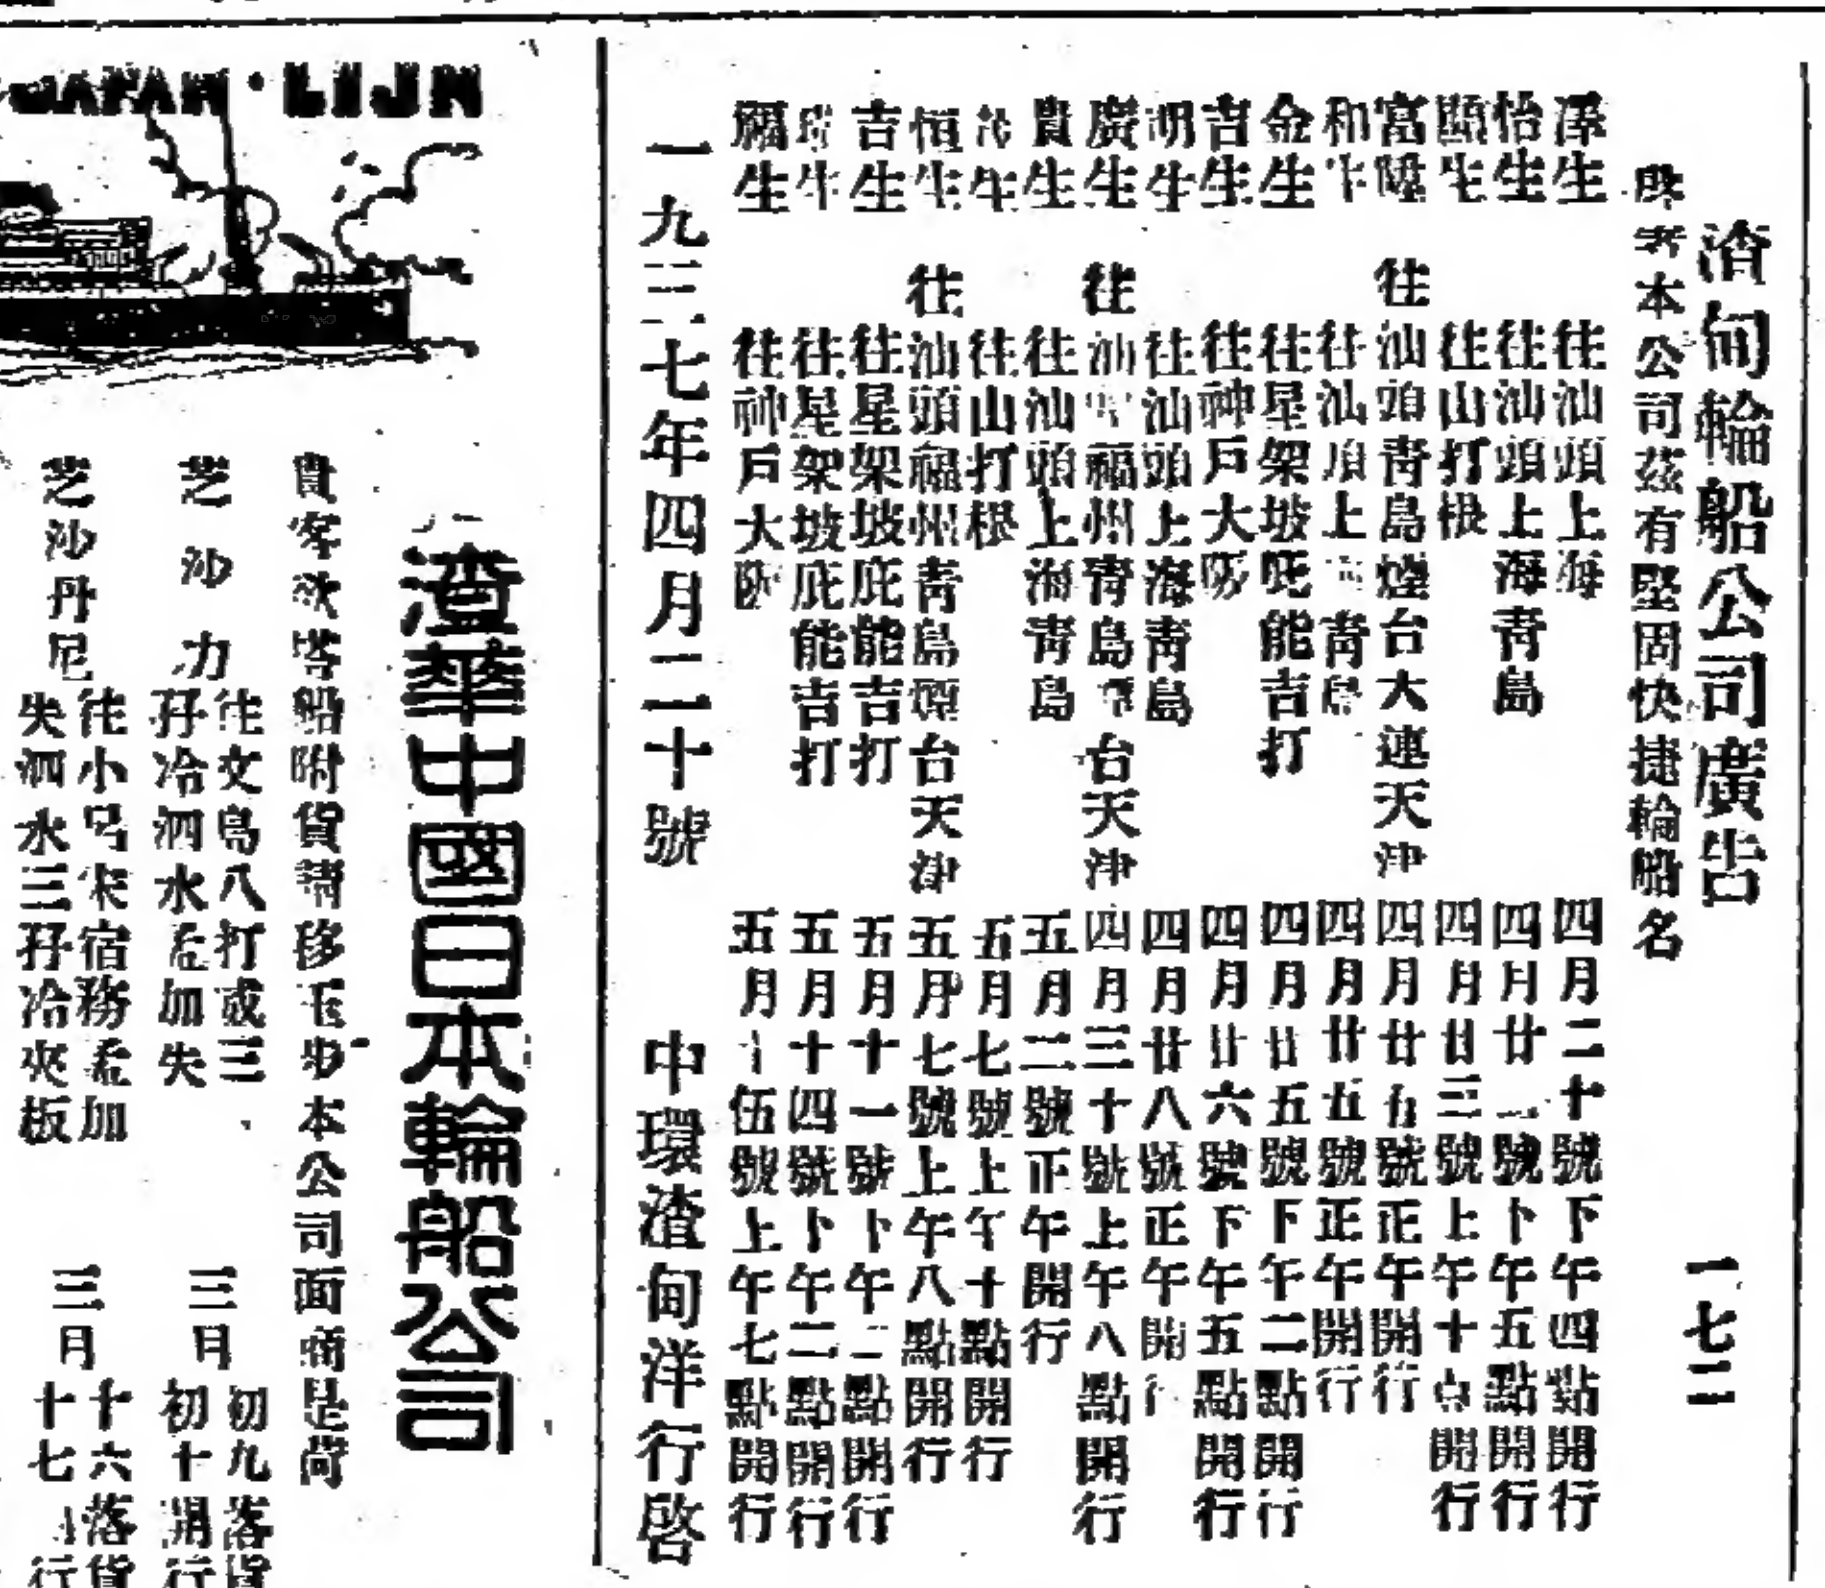 渣甸輪船公司廣告
一七二
啟者本公司茲有堅固快捷輪船名
澤生 往汕頭上海 四月二十號下午四點開行
怡生 往汕頭上海青島 四月廿一號下午五點開行
顯生 往山打根 四月廿三號上午十点開行
富陞 往汕頭青島煙台大連天津 四月廿五號正午開行
和生 往汕頭上海青島 四月廿五號正午開行
金生 往星架坡庇能吉打 四月廿五號下午二點開行
吉生 往神戶大阪 四月廿六號下午五點開行
明生 往汕頭上海青島 四月廿八號正午開行
廣生 往汕頭福州青島煙台天津 四月三十號上午八點開行
貴生 往汕頭上海青島 五月二號正午開行
茂生 往山打根 五月七號上午十點開行
恒生 往汕頭福州青島煙台天津 五月七號上午八點開行
吉生 往星架坡庇能吉打 五月十一號下午二點開行
瑞生 往星架坡庇能吉打 五月十四號下午二點開行
福生 往神戶大阪 五月十伍號上午七點開行
一九三七年四月二十號 中環渣甸洋行啓
JAPAN·LIJN
渣華中國日本輪船公司
貴客欲搭船附貨請移玉步本公司面商是荷
芝沙力 往文島八打威三孖冷泗水孟加失 三月初九落貨初十開行
芝沙丹尼 往小呂宋宿務孟加失泗水三孖冷夾板 三月十六落貨十七行